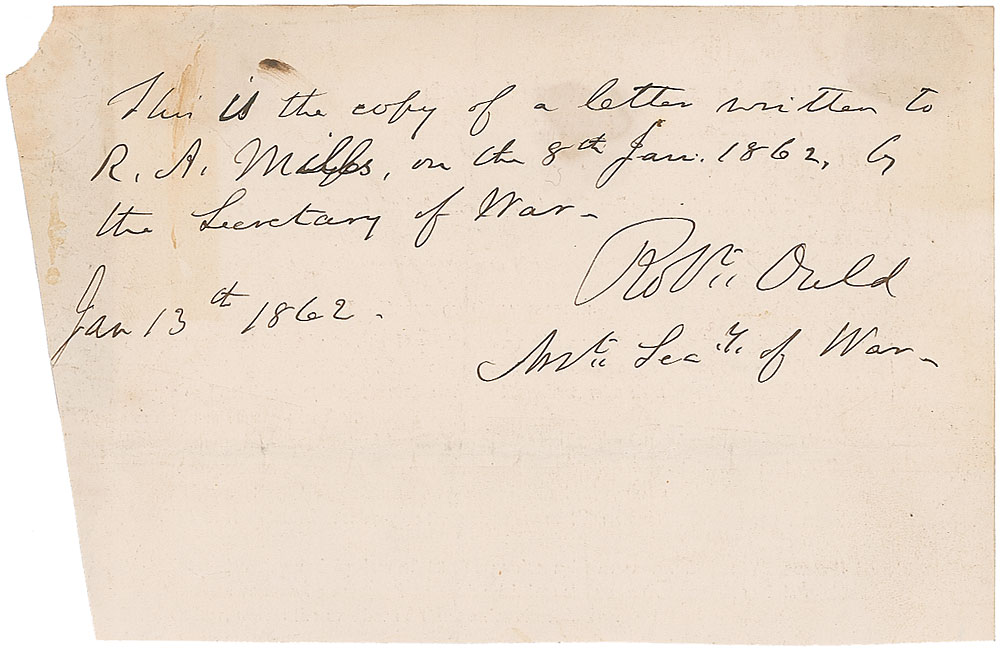 This is the copy of a letter written to
R. A. Mills, on the 8th Jan. 1862, by
the Secretary of War-
Robt Ould
Jan 13th 1862.
Asst. Secy. of War-